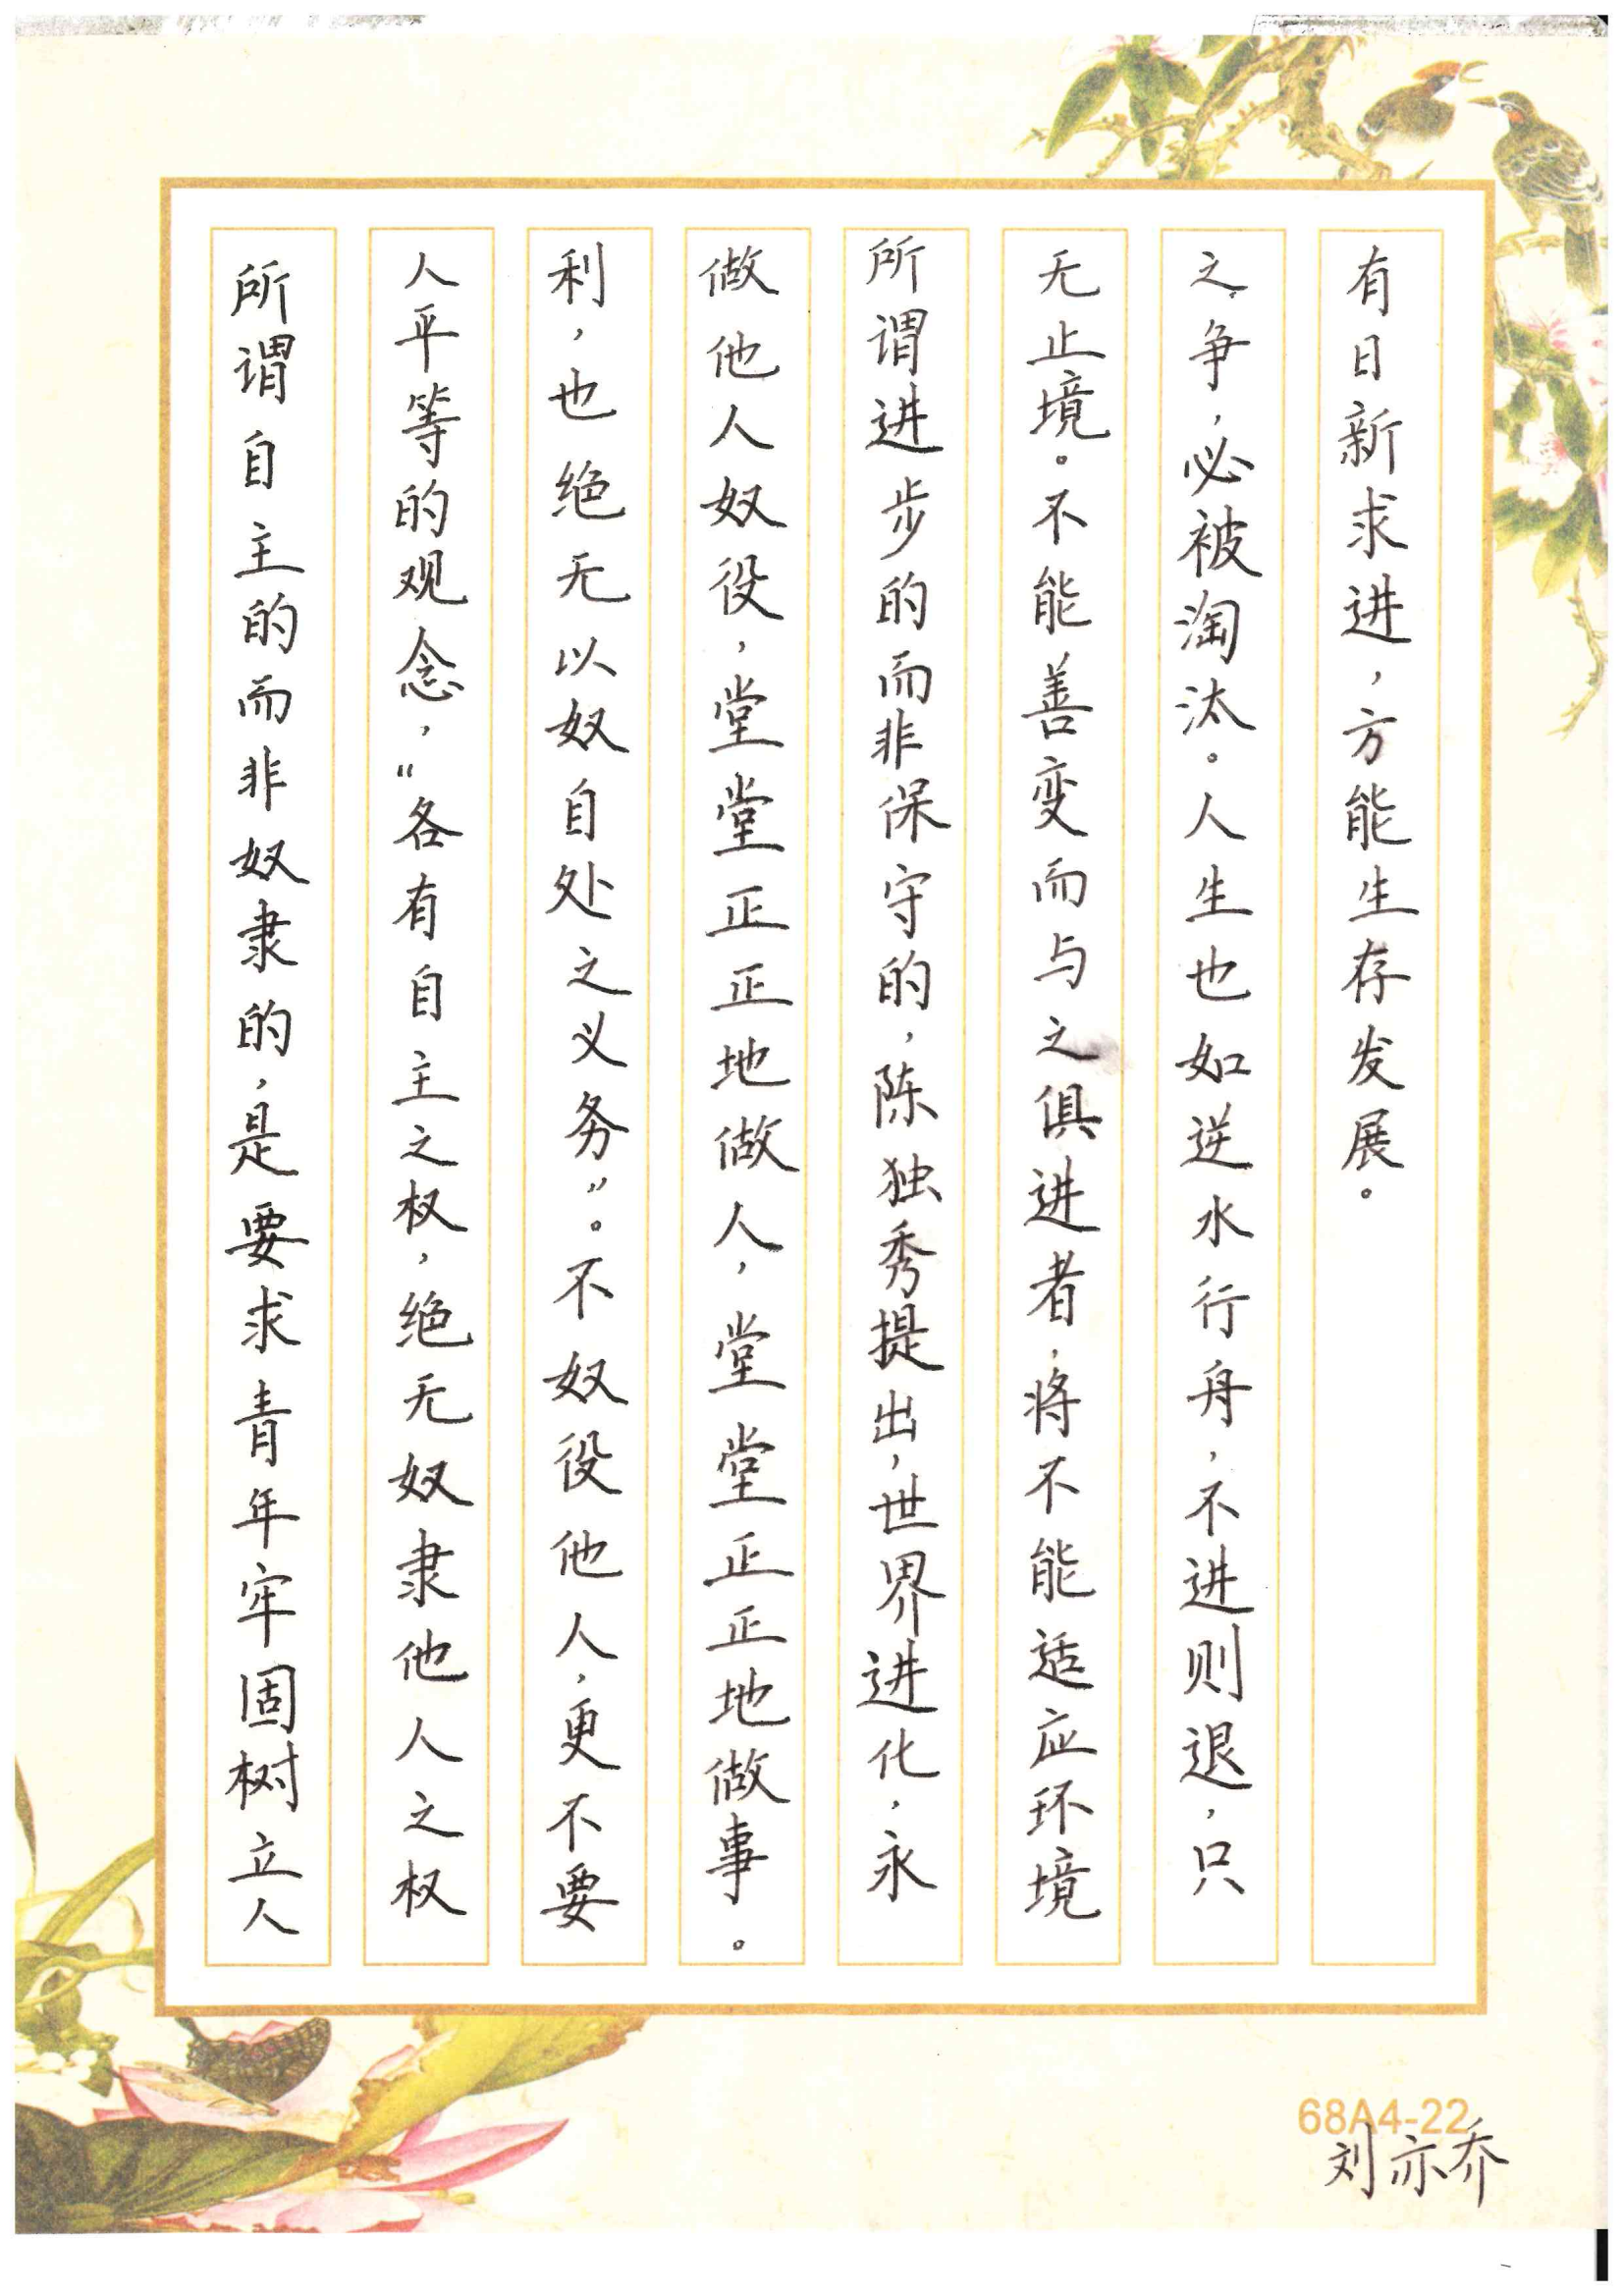 所谓自主的而非奴隶的，是要求青年牢固树立人
人平等的观念，“各有自主之权，绝无奴隶他人之权
利，也绝无以奴自处之义务”。不奴役他人，更不要
做他人奴役，堂堂正正地做人，堂堂正正地做事。
所谓进步的而非保守的，陈独秀提出，世界进化，永
无止境。不能善变而与之俱进者，将不能适应环境
之争，必被淘汰。人生也如逆水行舟，不进则退，只
有日新求进，方能生存发展。
68A4-22
刘亦乔